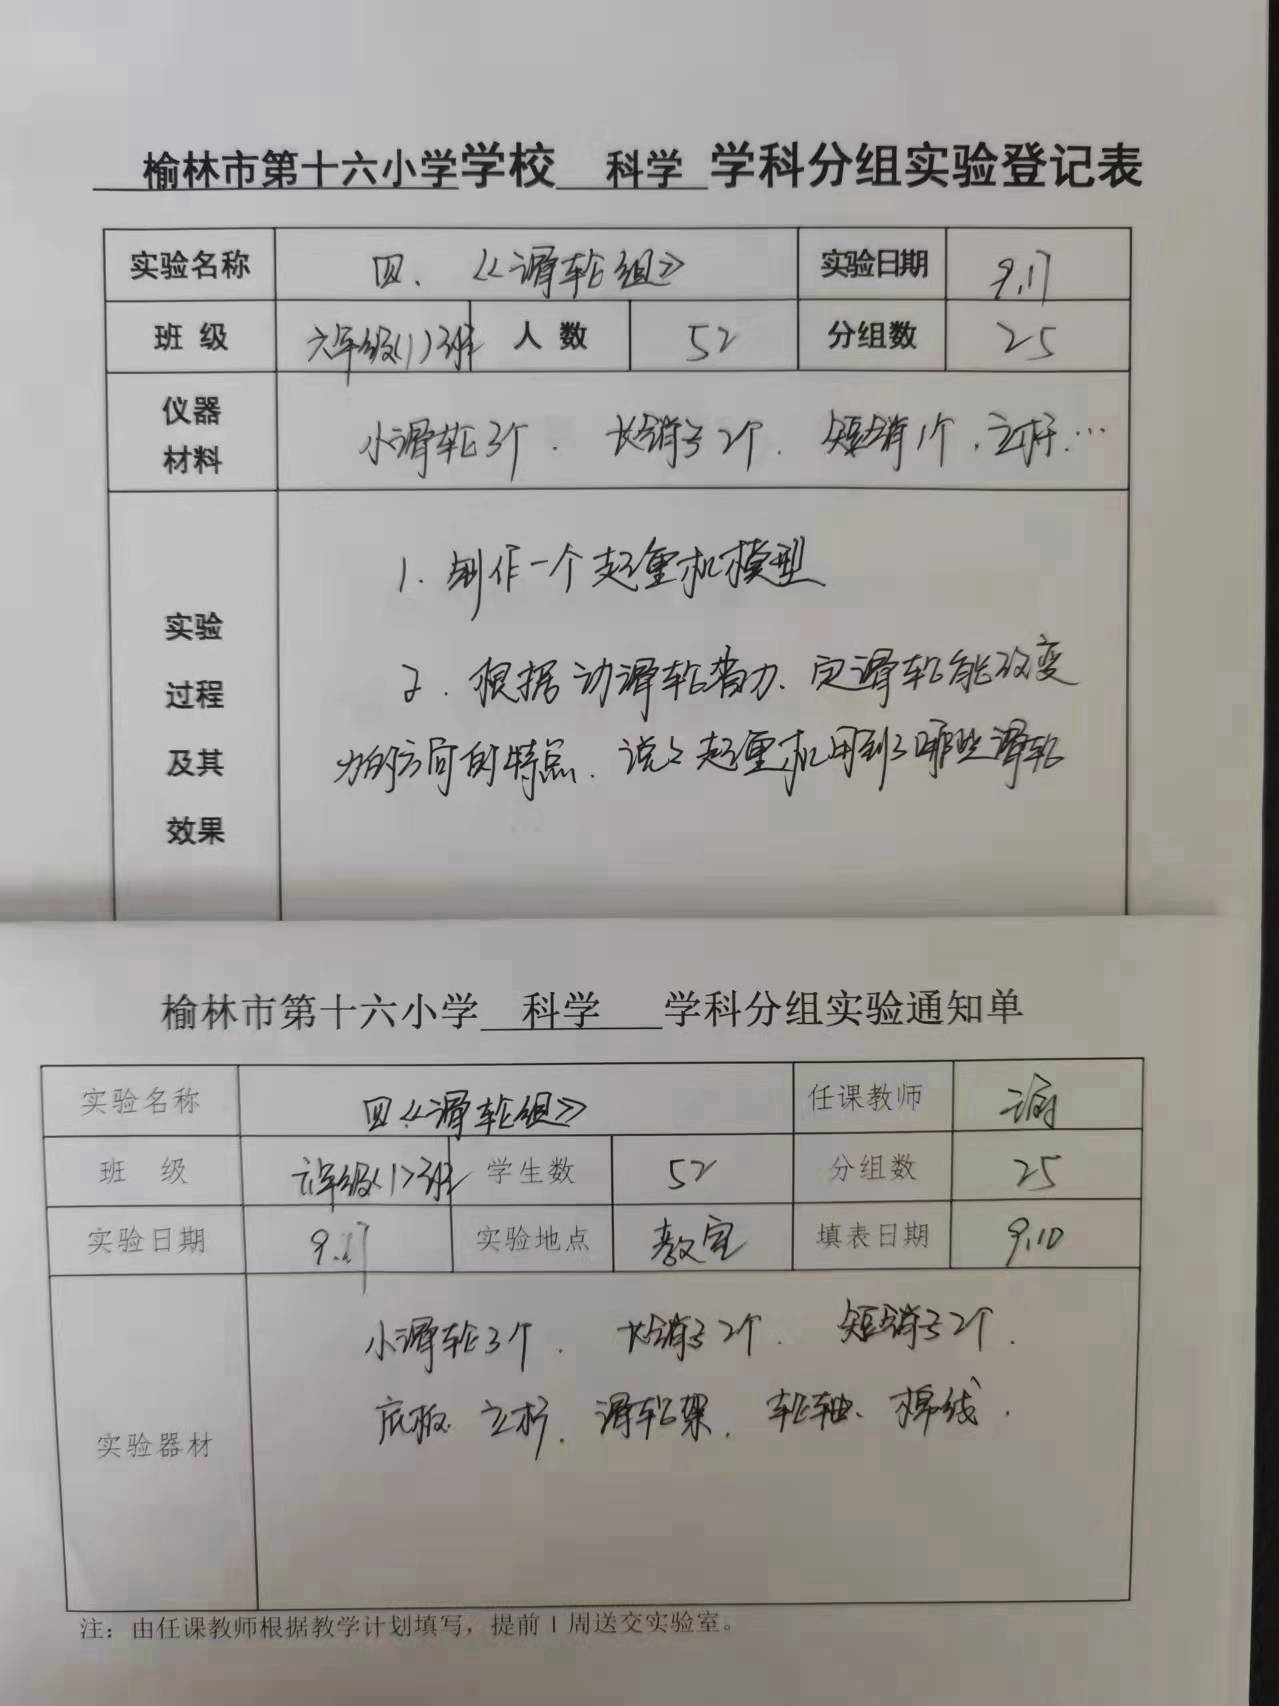 榆林市第十六小学学校 科学 学科分组实验登记表
实验名称 四、《滑轮组》 实验日期 9.17
班 级 六年级(1)班 人 数 52 分组数 25
仪器
材料
小滑轮3个. 长销子2个. 短销1个.立杆…
实验
过程
及其
效果
1. 制作一个起重机模型
2. 根据动滑轮省力、定滑轮能改变
力的方向的特点、说说起重机用到了哪些滑轮
榆林市第十六小学 科学 学科分组实验通知单
实验名称 四《滑轮组》 任课教师
班 级 六年级(1)班 学生数 52 分组数 25
实验日期 9.17 实验地点 教室 填表日期 9.10
实验器材
小滑轮3个. 长销子2个. 短销子2个.
底板. 立杆. 滑轮架. 轮轴、棉线.
注：由任课教师根据教学计划填写，提前1周送交实验室。